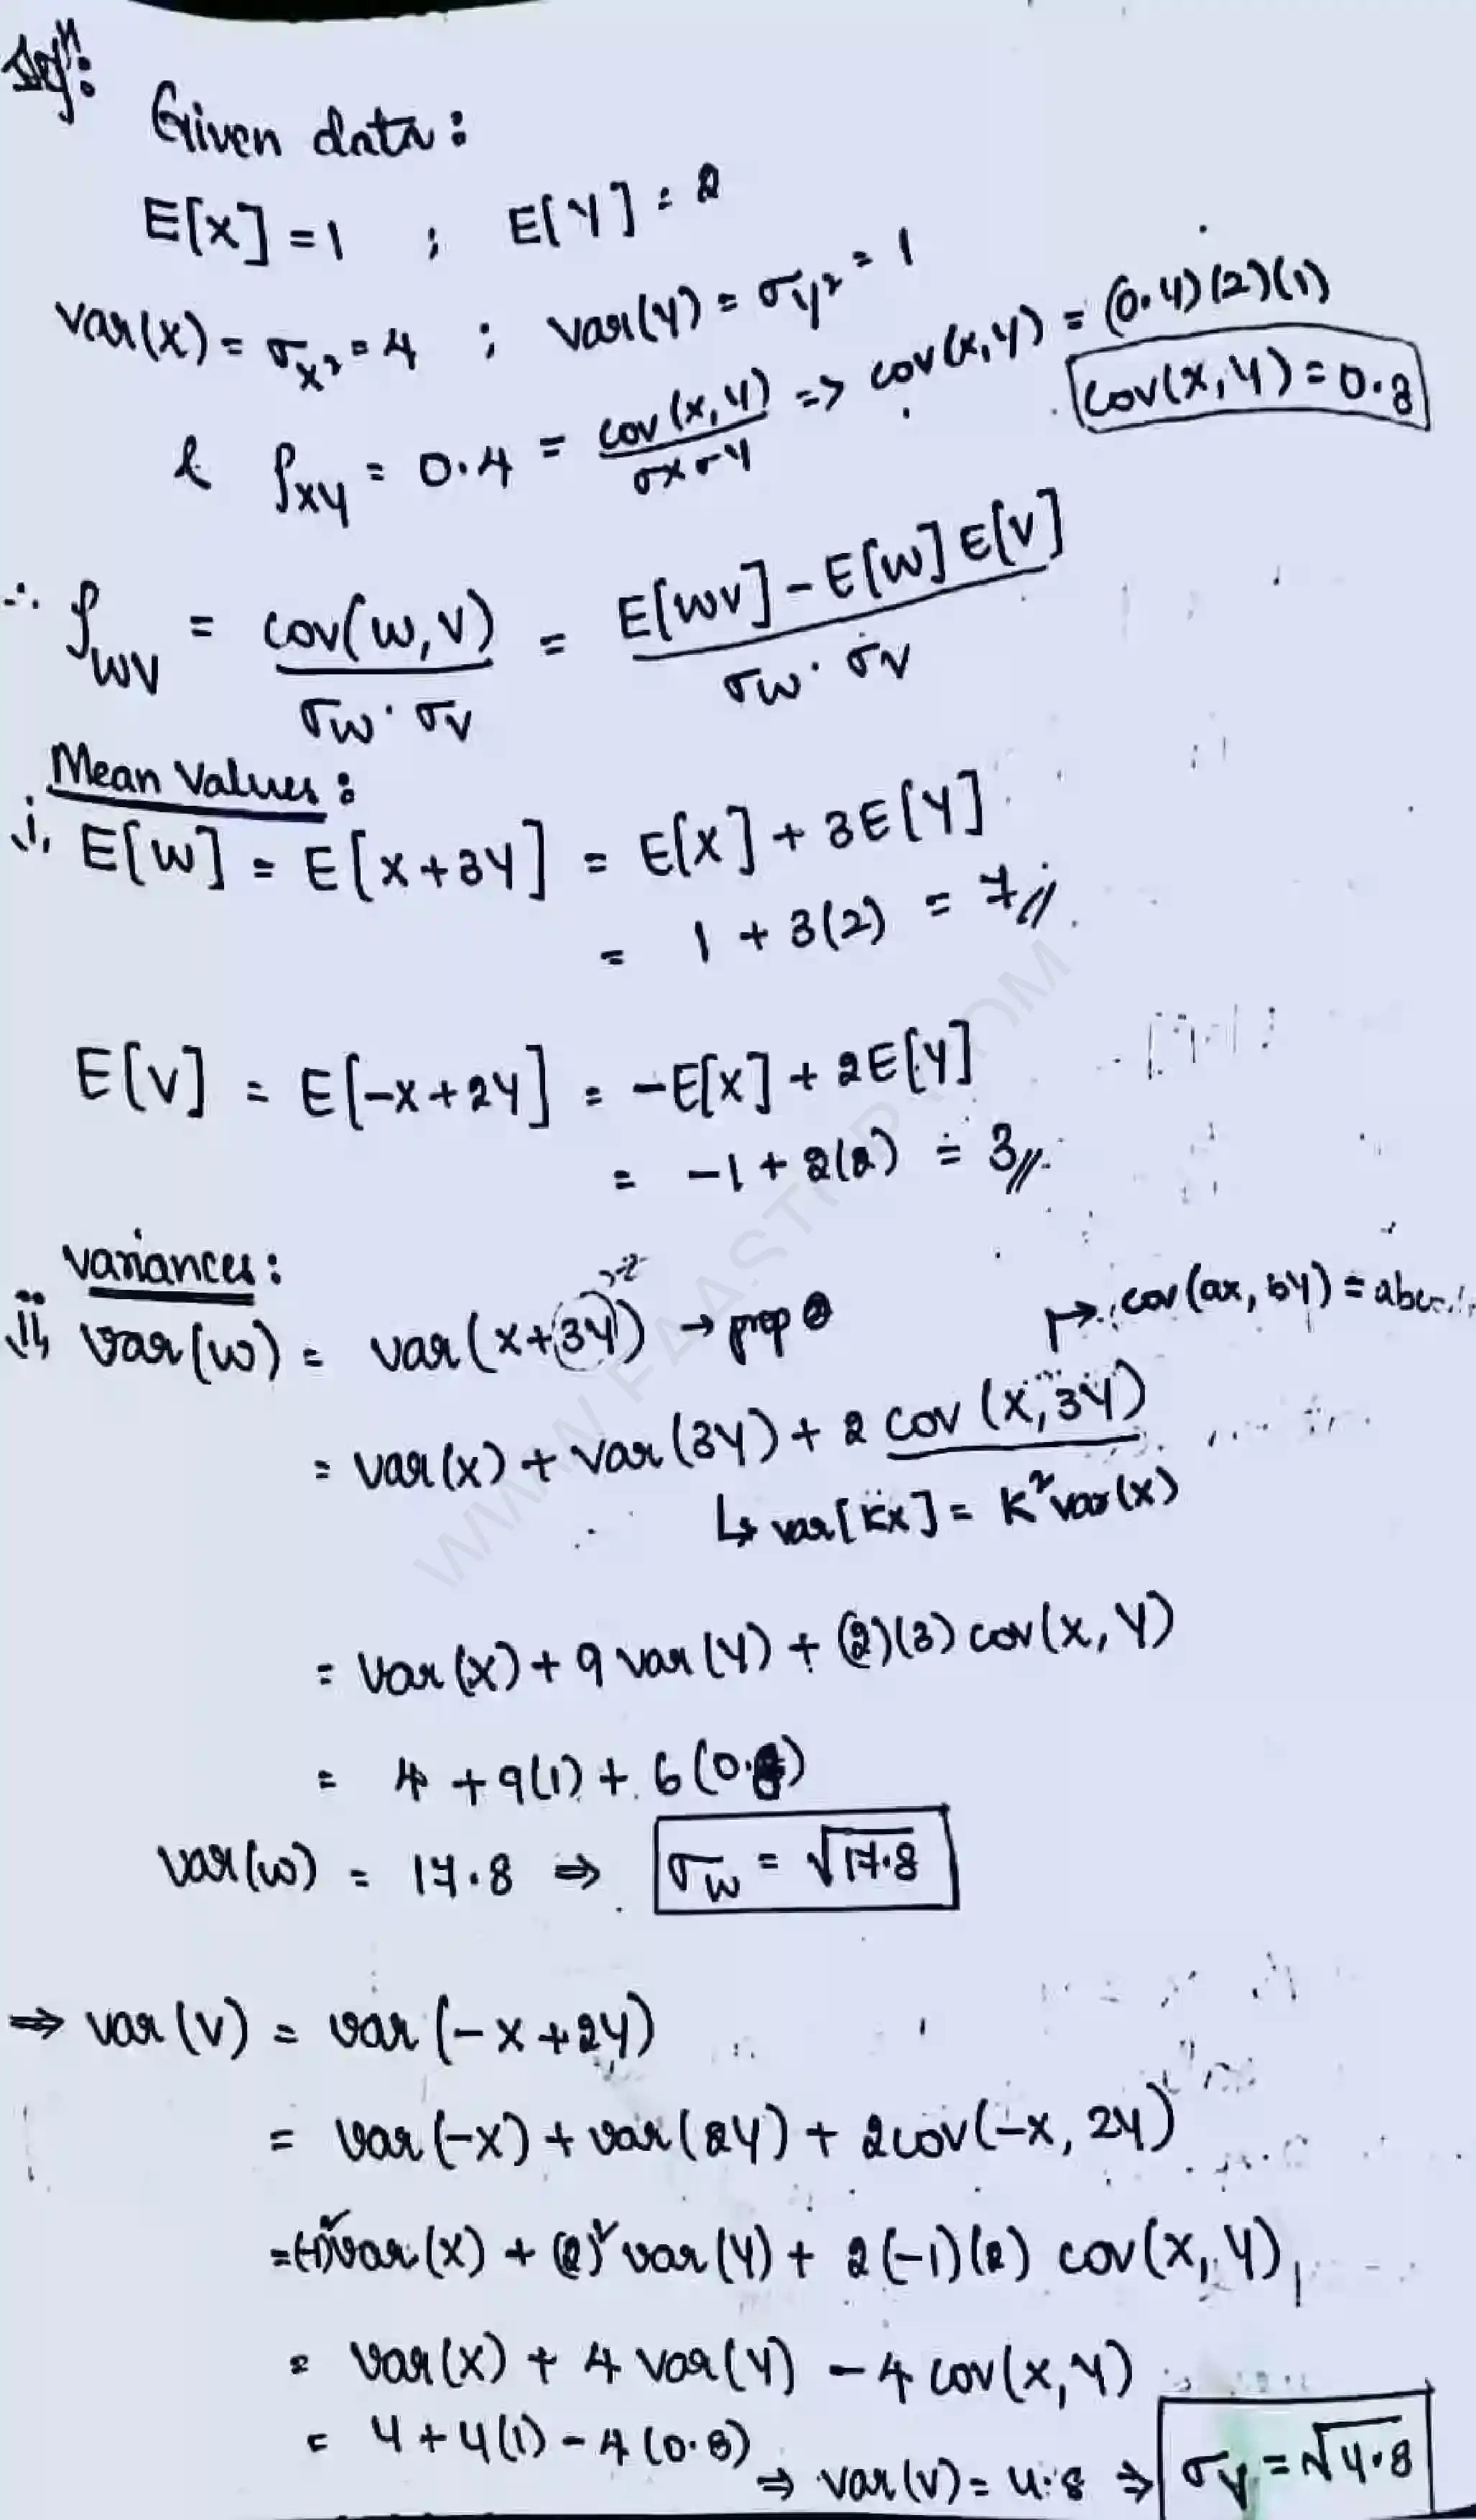 Solⁿ:
Given data:
E[X] = 1 ; E[Y] = 2
Var(X) = σx² = 4 ; Var(Y) = σy² = 1
& ρxy = 0.4 = cov(x,y)/σxσy => cov(x,y) = (0.4)(2)(1)
cov(x,y) = 0.8
∴ ρwv = cov(w,v)/σw·σv = E[WV] - E[W] E[V]/σw·σv
Mean Values:
i, E[W] = E[X+3Y] = E[X] + 3E[Y]
= 1 + 3(2) = 7//
E[V] = E[-X+2Y] = -E[X] + 2E[Y]
= -1 + 2(2) = 3//
Variances:
ii, Var(W) = Var(X+3Y) → prop
↦ cov(ax, by) = ab
= Var(X) + Var(3Y) + 2 cov(X,3Y)
↳ var[KX] = K² var(X)
= Var(X) + 9 Var(Y) + (2)(3) cov(X,Y)
= 4 + 9(1) + 6(0.8)
Var(W) = 17.8 ⇒ σw = √17.8
⇒ Var(V) = Var(-X+2Y)
= Var(-X) + Var(2Y) + 2cov(-X, 2Y)
= (-1)²Var(X) + (2)² Var(Y) + 2(-1)(2) cov(X,Y)
= Var(X) + 4 Var(Y) - 4 cov(X,Y)
= 4 + 4(1) - 4(0.8)
⇒ Var(V) = 4.8 ⇒ σv = √4.8